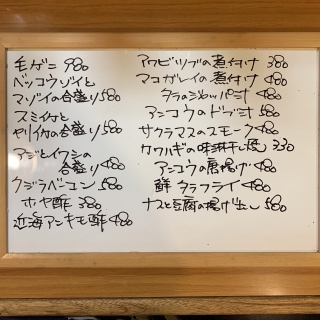 毛ガニ 980
ベッコウゾイと
マゾイの合盛り 580
スミイカと
ヤリイカの合盛り 580
アジとイワシの
合盛り 480
クジラベーコン 580
ホヤ酢 380
近海アンキモ酢 480
アワビツブの煮付け 380
マコガレイの煮付け 480
タラのジャッパ汁 480
アンコウのドブ汁 580
サクラマスのスモーク 480
カワハギの味淋干し 330
アンコウの唐揚げ 480
鮮タラフライ 480
ナスと豆腐の揚げ出し 580